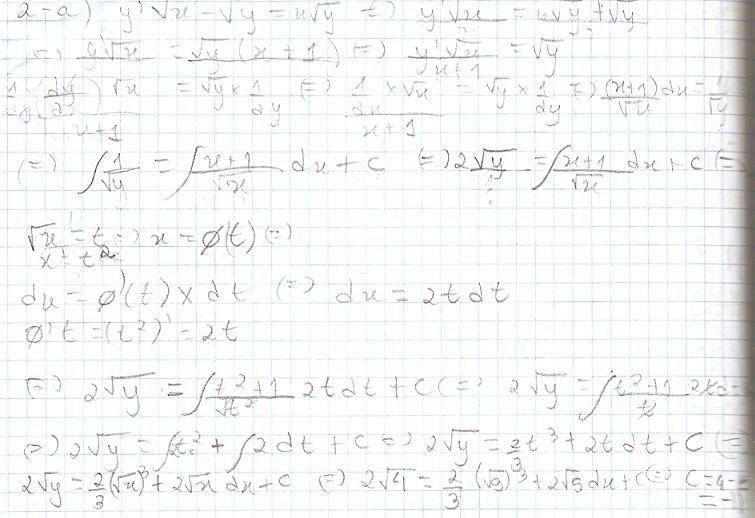 2-a) y'√x - √y = x√y (=) y'√x = x√y + √y
(=) y'√x = √y (x + 1) (=) y'√x / x+1 = √y
(dy/dx) √x / x+1 = √y × 1/dy (=) 1/dx × √x / x+1 = √y × 1/dy (=) (x+1)/√x dx =
(=) ∫ 1/√y = ∫ x+1/√x dx + c (=) 2√y = ∫ x+1/√x dx + c (=)
√x = t (=) x = ø(t) (=)
x = t²
dx = ø'(t) × dt (=) dx = 2t dt
ø't = (t²)' = 2t
(=) 2√y = ∫ t²+1/√t² 2t dt + C (=) 2√y = ∫ t²+1/t
(=) 2√y = ∫ t² + ∫ 2 dt + C (=) 2√y = 2/3 t³ + 2t dt + C (=)
2√y = 2/3 (√x)³ + 2√x dx + C (=) 2√4 = 2/3 (√9)³ + 2√9 dx + C (=) C = 4 -